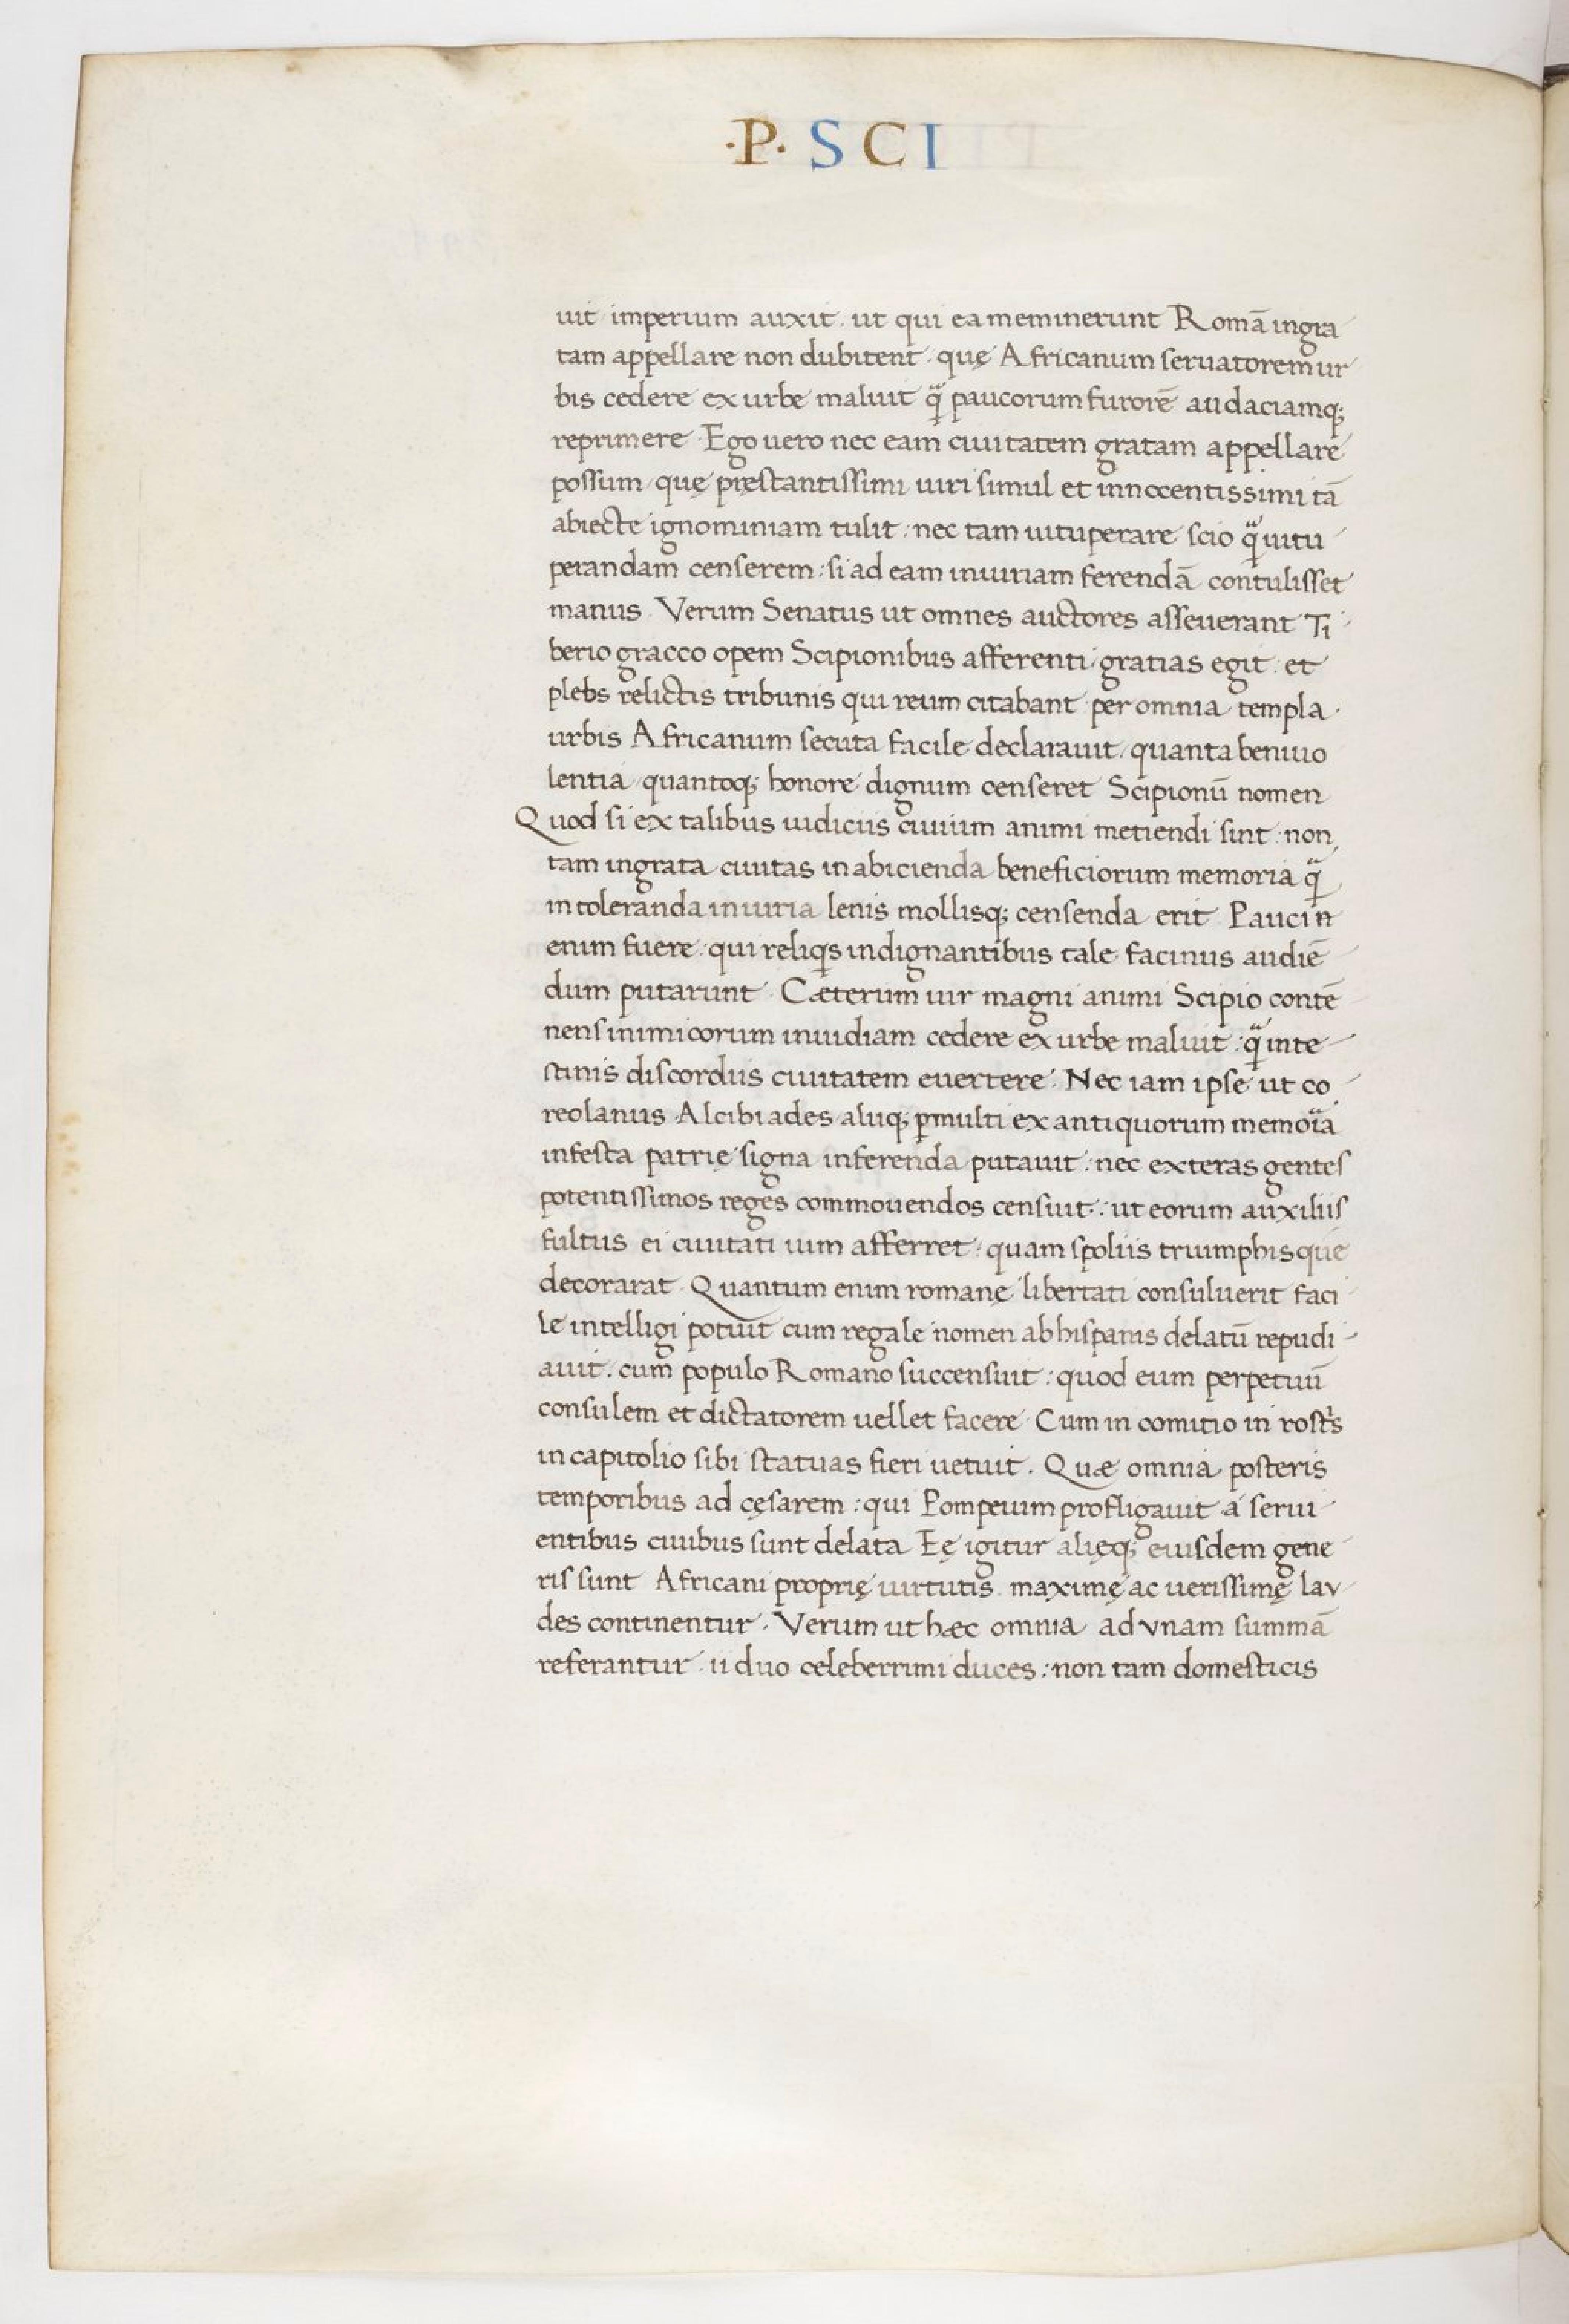 ·P· SCI
uit imperium auxit. ut qui ea meminerunt Romā ingra
tam appellare non dubitent. quę Africanum seruatorem ur
bis cedere ex urbe maluit q̈̃ paucorum furorē audaciamq;
reprimere. Ego uero nec eam ciuitatem gratam appellare
possum quę pręstantissimi uiri simul et innocentissimi tā
abiecte ignominiam tulit: nec tam uituperare scio q̈̃ uitu
perandam censerem: si ad eam iniuriam ferendā contulisset
manus. Verum Senatus ut omnes auctores asseuerant Ti
berio gracco opem Scipionibus afferenti gratias egit. et
plebs relictis tribunis qui reum citabant per omnia templa
urbis Africanum secuta facile declarauit quanta beniuo
lentia quantoq; honore dignum censeret Scipionū nomen
Quod si ex talibus iudiciis ciuium animi metiendi sint: non
tam ingrata ciuitas in abicienda beneficiorum memoria q̈̃
in toleranda iniuria lenis mollisq; censenda erit. Paucin
enim fuere: qui reliq̃s indignantibus tale facinus audiē
dum putarunt. Cæterum uir magni animi Scipio contē
nens inimicorum inuidiam cedere ex urbe maluit: q̈̃ inte
stinis discordiis ciuitatem euertere. Nec iam ipse ut co
reolanus Alcibiades aliiq; p̱multi ex antiquorum memoïa
infesta patrię signa inferenda putauit: nec exteras gentes
potentissimos reges commouendos censuit: ut eorum auxiliis
fultus ei ciuitati uim afferret: quam spoliis triumphisque
decorarat. Quantum enim romanę libertati consuluerit faci
le intelligi potuit cum regale nomen ab hispanis delatū repudi
auit. cum populo Romano succensuit: quod eum perpetuū
consulem et dictatorem uellet facere. Cum in comitio in rostr̃s
in capitolio sibi statuas fieri uetuit. Quæ omnia posteris
temporibus ad cęsarem: qui Pompeium profligauit á serui
entibus ciuibus sunt delata. Eę igitur alięq; eiusdem gene
ris sunt Africani proprię uirtutis maximę ac uerissimę lav
des continentur. Verum ut hæc omnia ad vnam summā
referantur. ii duo celeberrimi duces: non tam domesticis